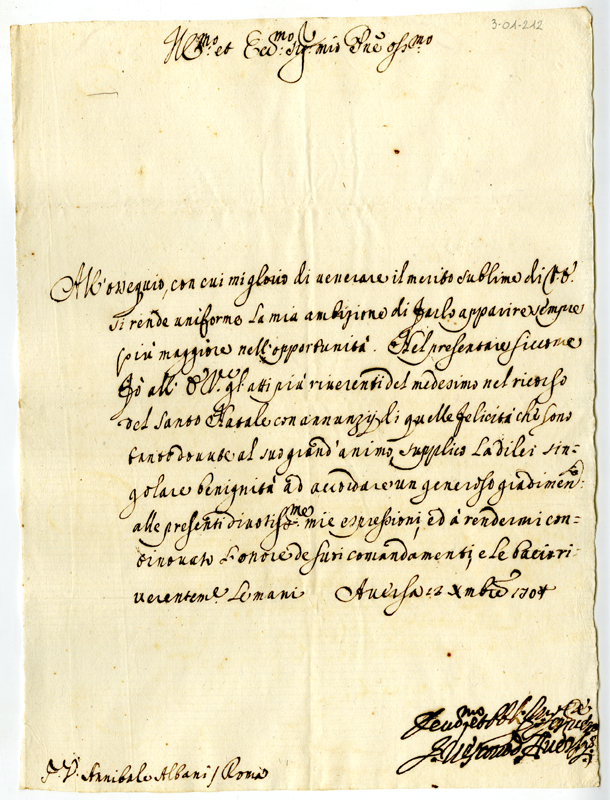 3-01-212
Ill.mo et Ecc.mo Sig.r mio P.ne oss.mo
All'ossequio, con cui mi glorio di venerare il merito sublime di V.E.
si rende uniforme la mia ambizione di farlo apparire sempre
più maggiore nell'opportunità. Nel presentare siccome
fò all' E.V. gli atti più riverenti del medesimo nel ricorso
del Santo Natale con annunzij di quelle felicità che sono
tanto dovute al suo grand'animo, supplico la di lei sin-
golare benignità ad accordare un generoso gradimen.to
alle presenti divotiss.me mie espressioni, ed à rendermi con-
tinovato l'onore de suoi comandamenti, e le bacio ri-
verentem.e le mani Aversa 12 Xmbre 1704
S.r D. Annibale Albani / Roma